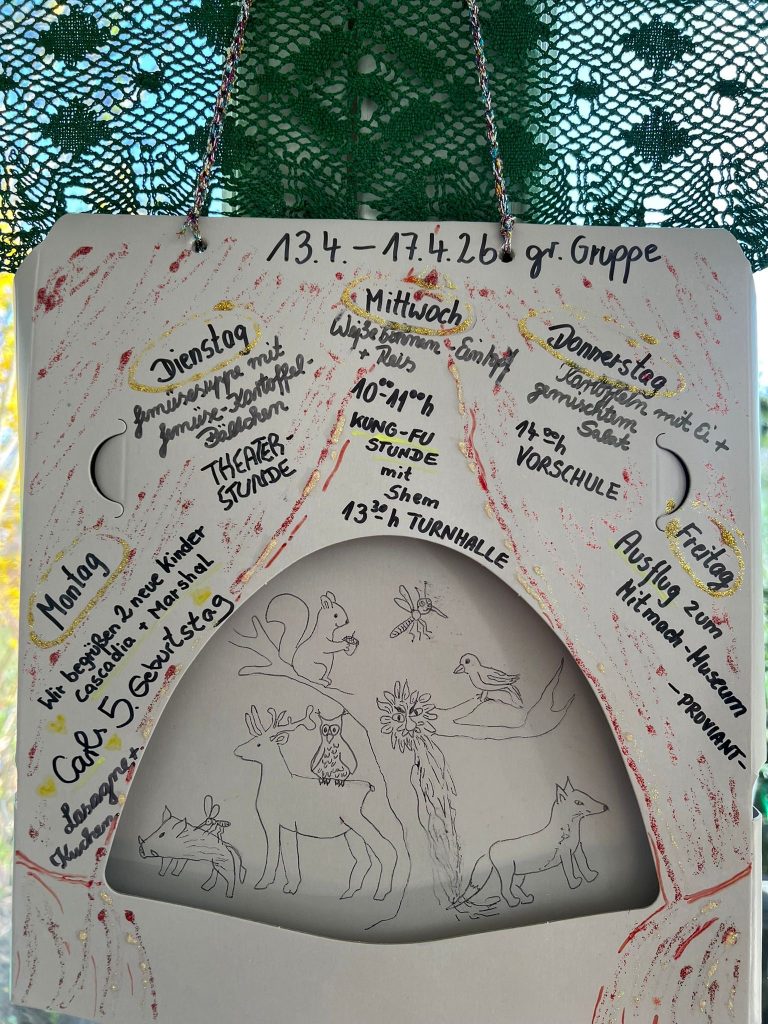 13.4. – 17.4.26 gr. Gruppe
Montag
Wir begrüßen 2 neue Kinder
Cascadia + Marshal
Carls 5. Geburtstag
Lasagne +
Kuchen
Dienstag
Gemüsesuppe mit
Gemüse-Kartoffel-
Bällchen
THEATER-
STUNDE
Mittwoch
Weiße Bohnen-Eintopf
+ Reis
10⁰⁰-11⁰⁰h
KUNG-FU
STUNDE
mit
Shem
13³⁰h TURNHALLE
Donnerstag
Kartoffeln mit Ei +
gemischtem
Salat
14⁰⁰h
VORSCHULE
Freitag
Ausflug zum
Mitmach-Museum
-PROVIANT-